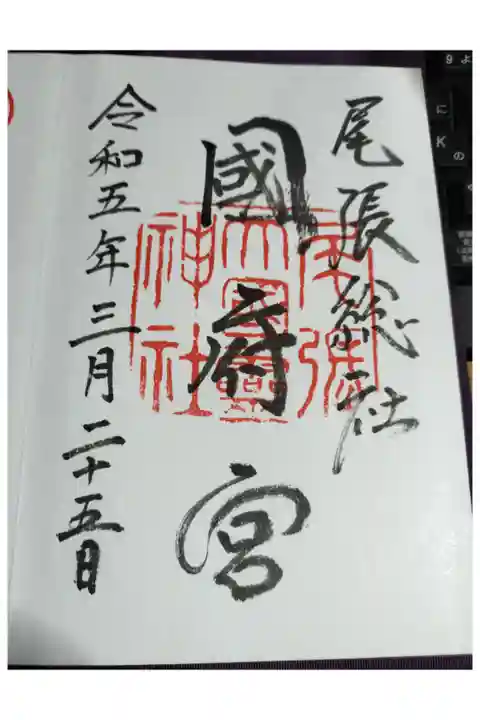 尾張総社
國府宮
尾張大國霊神社
令和五年三月二十五日
9 よ
に
K
の